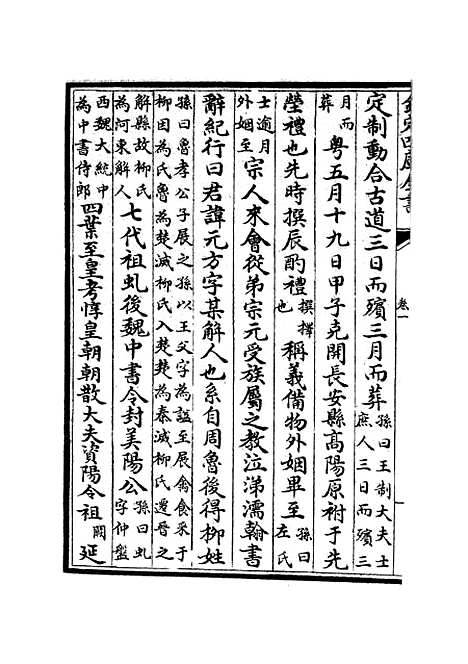 欽定四庫全書
卷一
定制動合古道三日而殯三月而葬孫曰王制大夫士
庶人三日而殯三
月而
葬
粤五月十九日甲子克開長安縣高陽原祔于先
塋禮也先時撰辰酌禮撰擇
也
稱義備物外姻畢至孫曰
左氏
士逾月
外姻至
宗人來會從弟宗元受族屬之教泣涕濡翰書
辭紀行曰君諱元方字某解人也系自周魯後得柳姓
孫曰魯孝公子展之孫以王父字為謚至展禽食采于
柳因為氏魯為楚滅柳氏入楚楚為秦滅柳氏遷晉之
解縣故柳氏
為河東解人
七代祖虬後魏中書令封美陽公孫曰虬
字仲盤
西魏大統中
為中書侍郎
四葉至皇考惇皇朝朝散大夫資陽令祖闕延